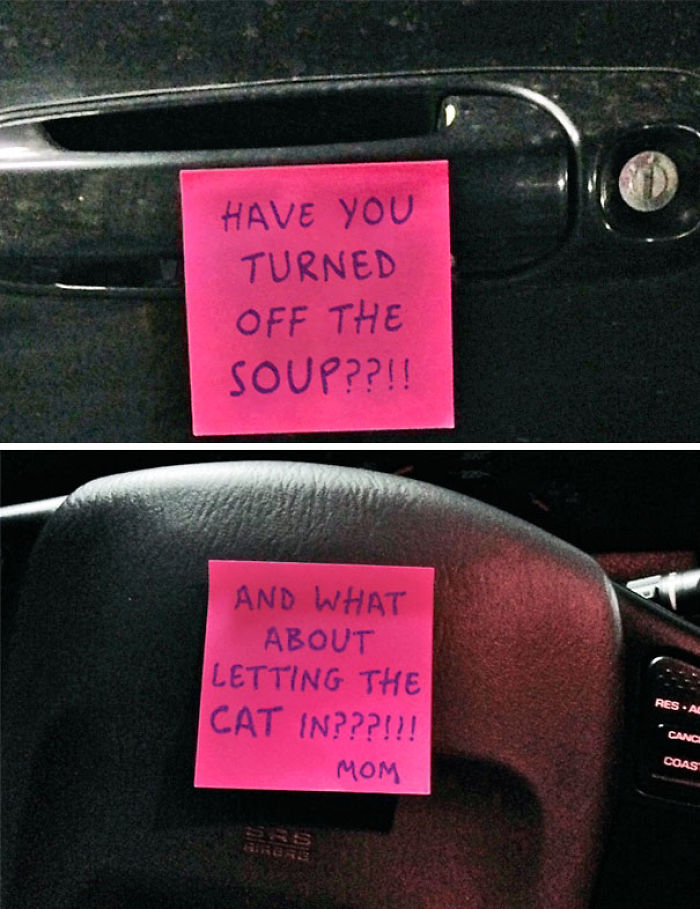 HAVE YOU
TURNED
OFF THE
SOUP??!!
AND WHAT
ABOUT
LETTING THE
CAT IN???!!!
MOM
RES
CANC
COAS
SRS
AIRBAG